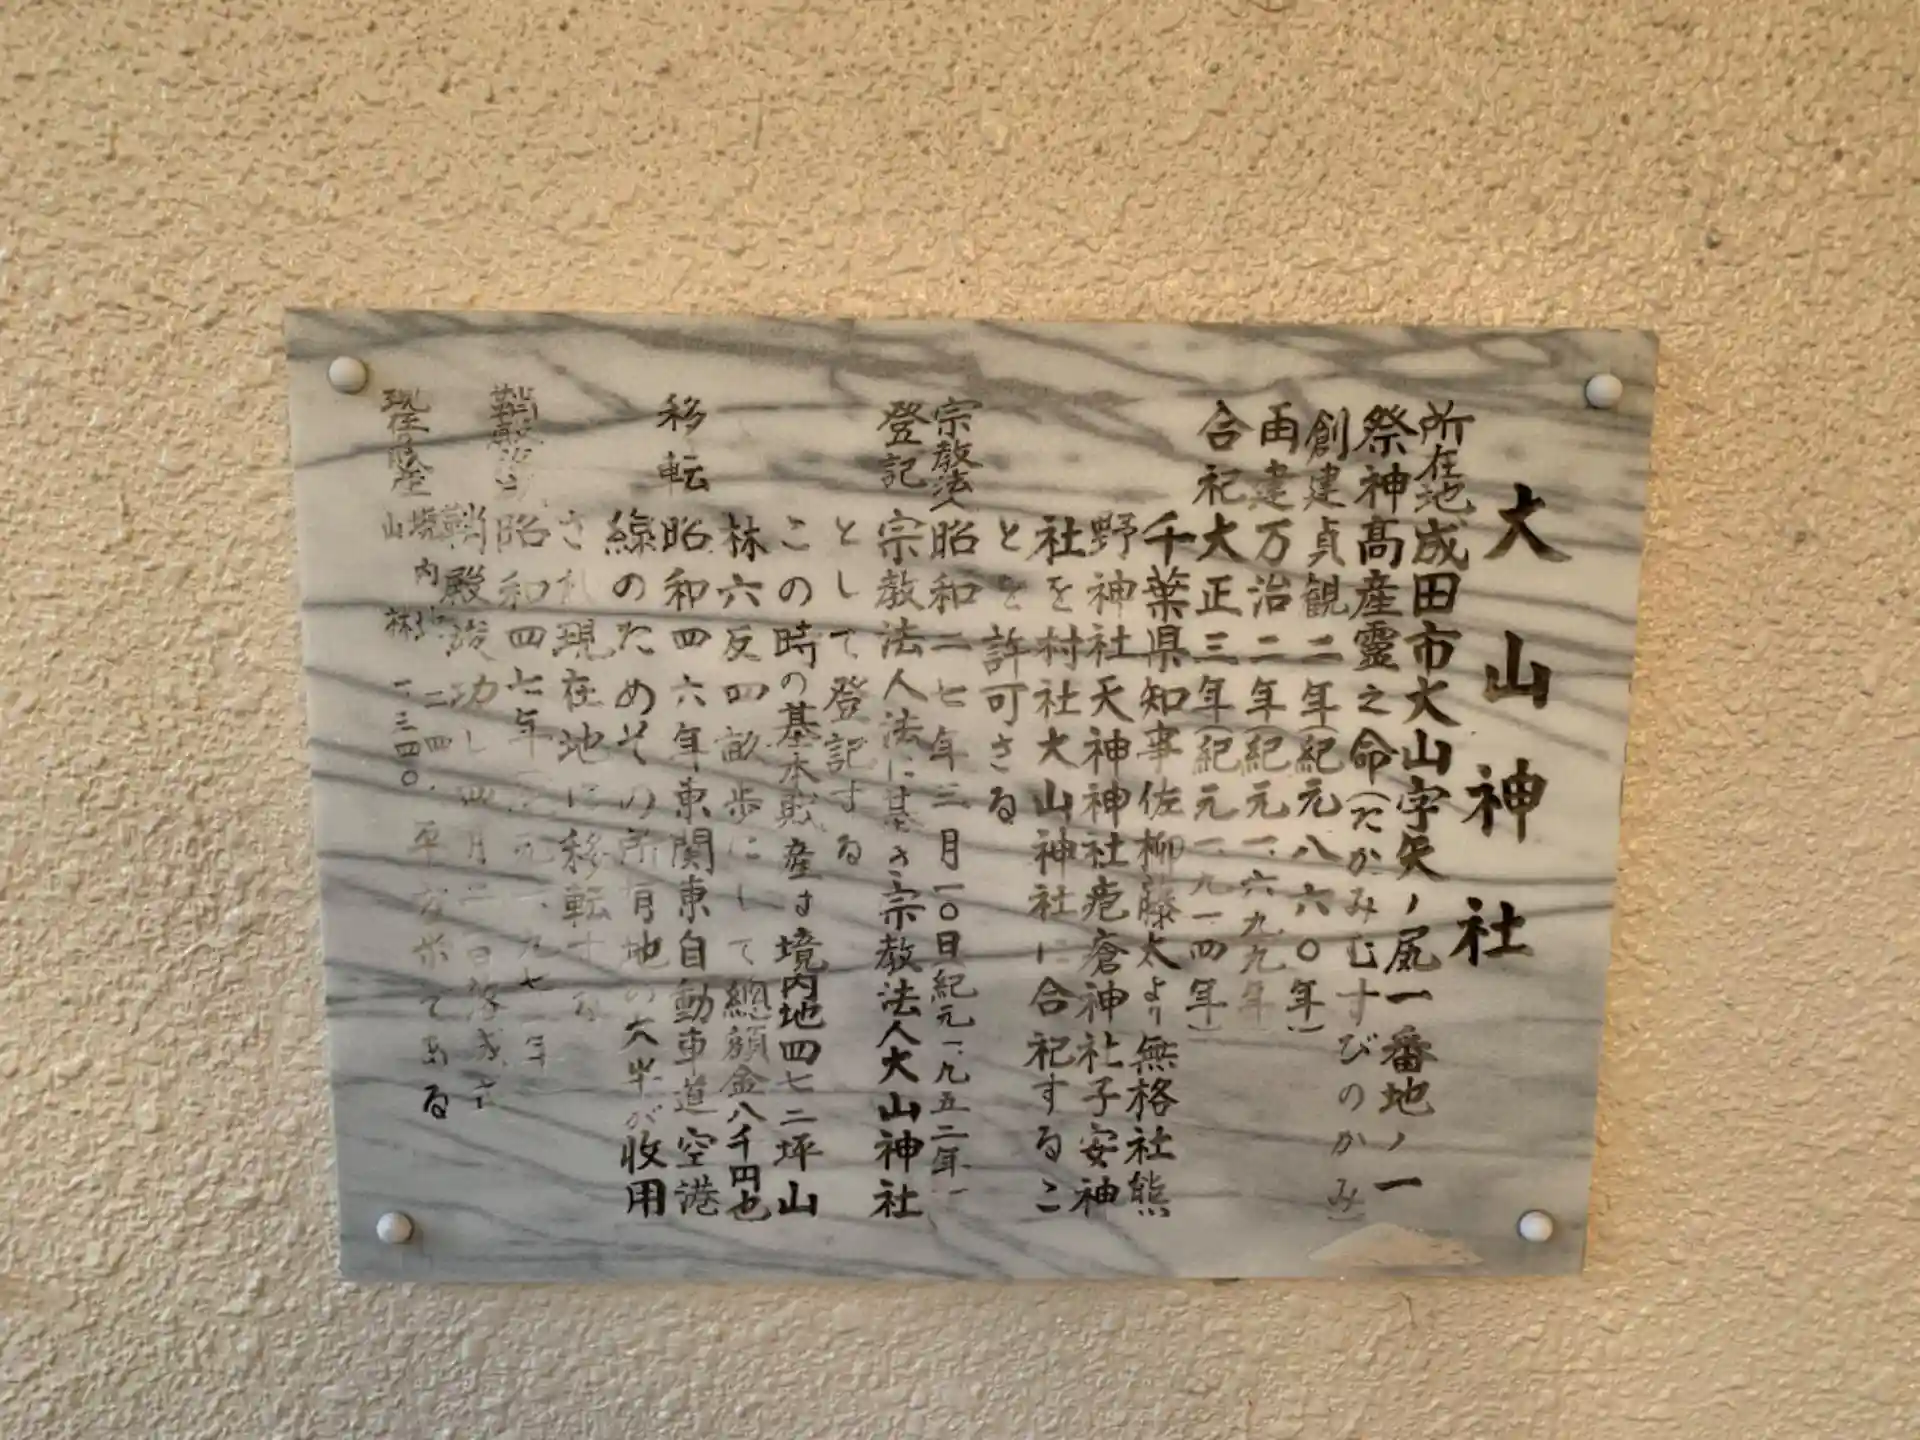 大山神社
所在地 成田市大山字矢ノ尻一番地ノ一
祭神 髙産靈之命(たかみむすびのかみ)
創建 貞観二年(紀元八六〇年)
再建 万治二年(紀元一、六九九年)
合祀 大正三年(紀元一、九一四年)
千葉県知事佐柳藤太より無格社熊
野神社天神神社疱瘡神社子安神
社を村社大山神社に合祀するこ
とを許可さる
宗教法人 昭和二七年三月一〇日紀元一、九五二年
登記 宗教法人法に基き宗教法人大山神社
として登記する
この時の基本財産は境内地四七二坪山
林六反四畝歩にして總額金八千円也
移転 昭和四六年東関東自動車道空港
線のためその所有地の大半が収用
され現在地に移転する
昭和四七年
殿竣功し四月二
現在 境内地 二四 平方米である
山林 一、三四〇